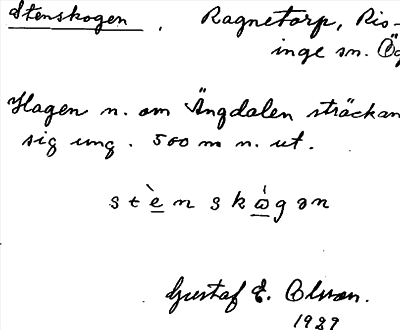 Stenskogen. Ragnetorp, Ris-
inge sn. Ög
Hagen n. om Ängdalen sträckan
sig ung. 500 m n. ut.
stè̱nskò̱gən
Gustaf E. Olsson.
1929